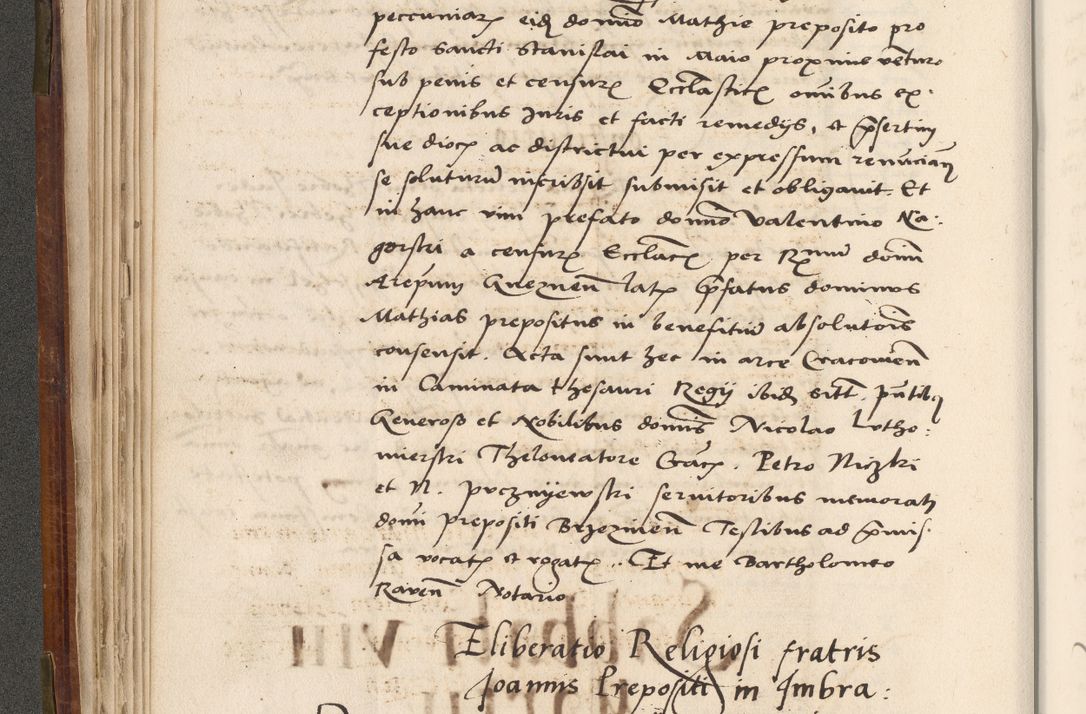 peccuniarz eid domno Mathie preposito pro
festo Sancti Stanislai in Maio proximo venturo
sub penis et censurz Ecclasticz omibus ex-
ceptionibus Juris et facti remedijs, et psertim
sue diocz ac districtui per expressum renuncian
se soluturu inscribsit submisit et obligauit. Et
in hanc vim prefato domno Valentino Na:
gorski a censurz Ecclacz per Rmum domm
Arepum Gneznen latz pfatus dominus
Mathias prepositus in benefitiu absolutois
consensit. Acta sunt hec in arce Cracouien
in Caminata thesauri Regij ibid sitt. pntibq
Generoso et Nobilibus domis Nicolao Lutho:
mierski Theloneatore Cracz. Petro Niczki
et N. puczniyewski seruitoribus memorati
domi prepositi Brzezinen Testibus ad pmis-
sa vocatz et rogatz. Et me Bartholomeo
Rauen Notario
Eliberatio Religiosi fratris
Joannis Prepositi in Imbra: